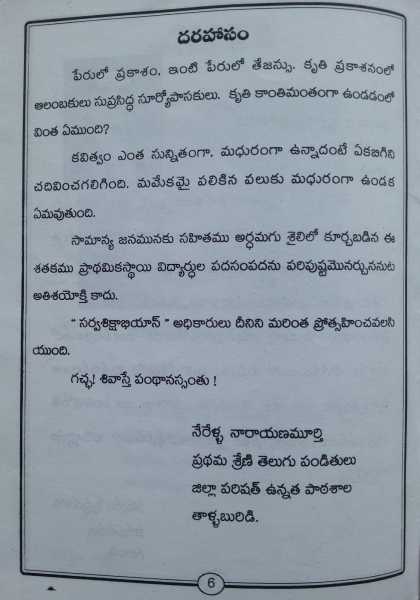 దరహాసం
పేరులో ప్రకాశం, ఇంటి పేరులో తేజస్సు, కృతి ప్రకాశనంలో
ఆలంబకులు సుప్రసిద్ధ సూర్యోపాసకులు. కృతి కాంతిమంతంగా ఉండడంలో
వింత ఏముంది?
కవిత్వం ఎంత సున్నితంగా, మధురంగా ఉన్నాదంటే ఏకబిగిని
చదివించగలిగింది. మమేకమై పలికిన పలుకు మధురంగా ఉండక
ఏమవుతుంది.
సామాన్య జనమునకు సహితము అర్థమగు శైలిలో కూర్చబడిన ఈ
శతకము ప్రాథమికస్థాయి విద్యార్థుల పదసంపదను పరిపుష్టమొనర్చుననుట
అతిశయోక్తి కాదు.
" సర్వశిక్షాభియాన్ " అధికారులు దీనిని మరింత ప్రోత్సహించవలసి
యుంది.
గచ్ఛ! శివాస్తే పంథానస్సంతు !
నేరేళ్ళ నారాయణమూర్తి
ప్రథమ శ్రేణి తెలుగు పండితులు
జిల్లా పరిషత్ ఉన్నత పాఠశాల
తాళ్ళబురిడి.
6